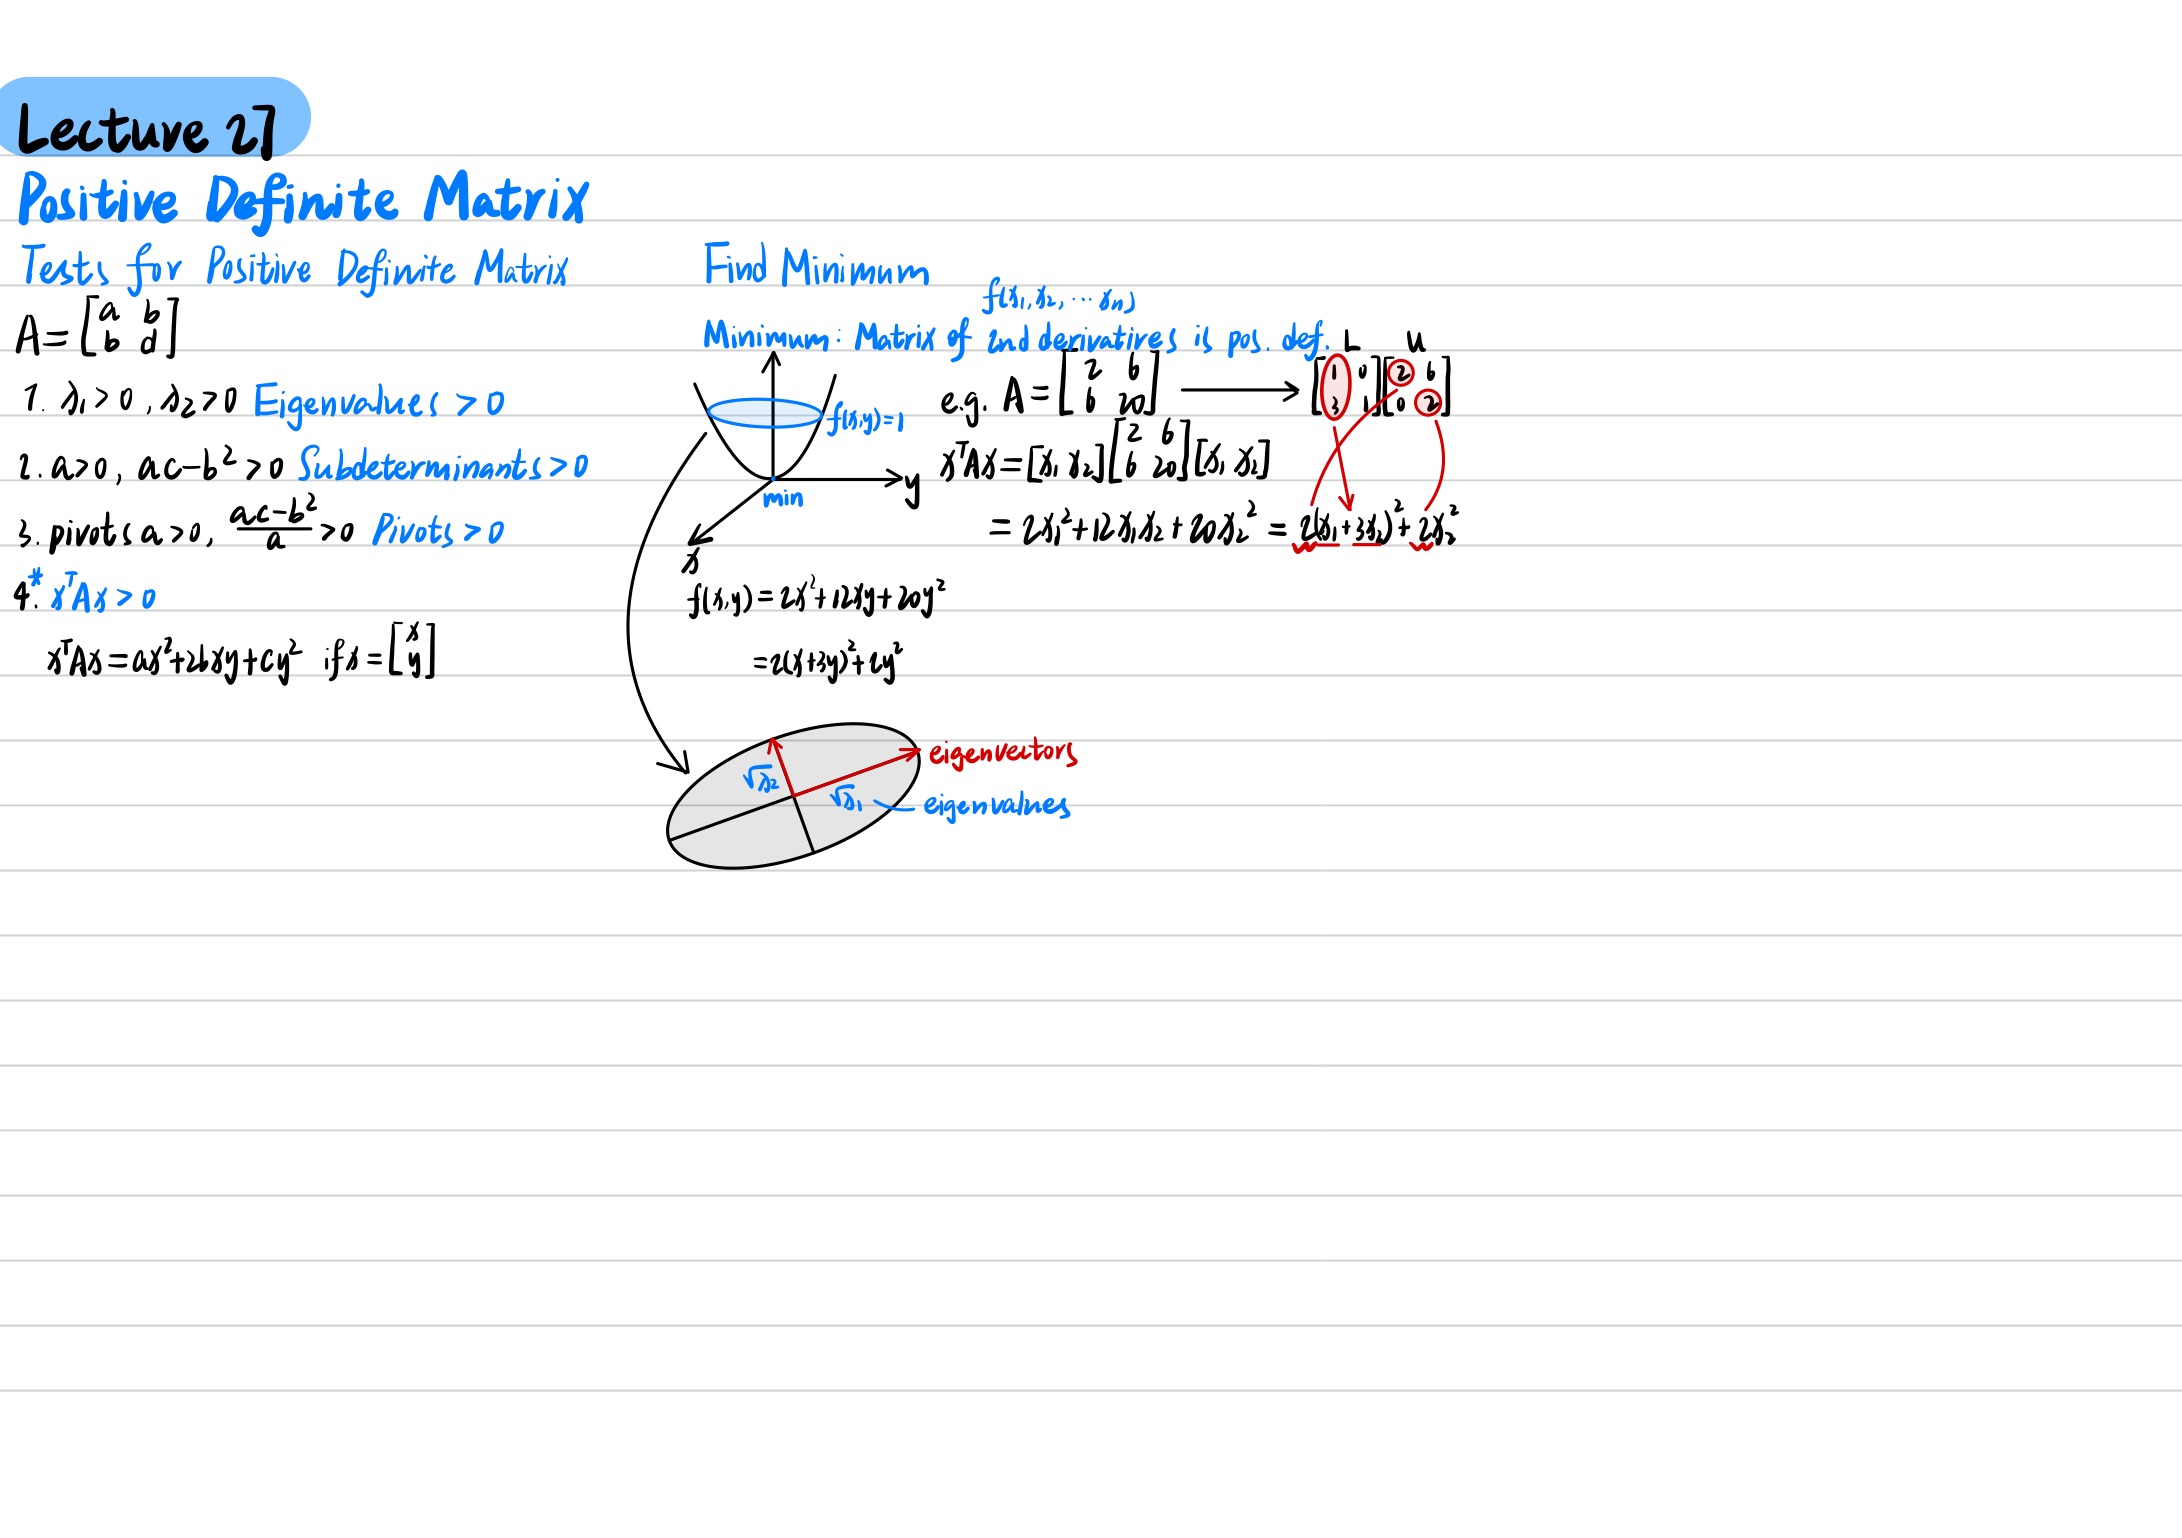 Lecture 27
Positive Definite Matrix
Tests for Positive Definite Matrix
A = [a b
b d]
1. λ₁ > 0, λ₂ > 0 Eigenvalues > 0
2. a > 0, ac - b² > 0 Subdeterminants > 0
3. pivots a > 0, (ac - b²)/a > 0 Pivots > 0
4.* xᵀAx > 0
xᵀAx = ax² + 2bxy + cy² if x = [x
y]
Find Minimum
f(x₁, x₂, ... xₙ)
Minimum: Matrix of 2nd derivatives is pos. def.
f(x,y) = 1
min
y
x
f(x,y) = 2x² + 12xy + 20y²
= 2(x + 3y)² + 2y²
√λ₂
√λ₁
eigenvectors
eigenvalues
L U
e.g. A = [2 6
6 20] → [1 0
3 1] [2 6
0 2]
xᵀAx = [x₁ x₂] [2 6
6 20] [x₁ x₂]
= 2x₁² + 12x₁x₂ + 20x₂² = 2(x₁ + 3x₂)² + 2x₂²